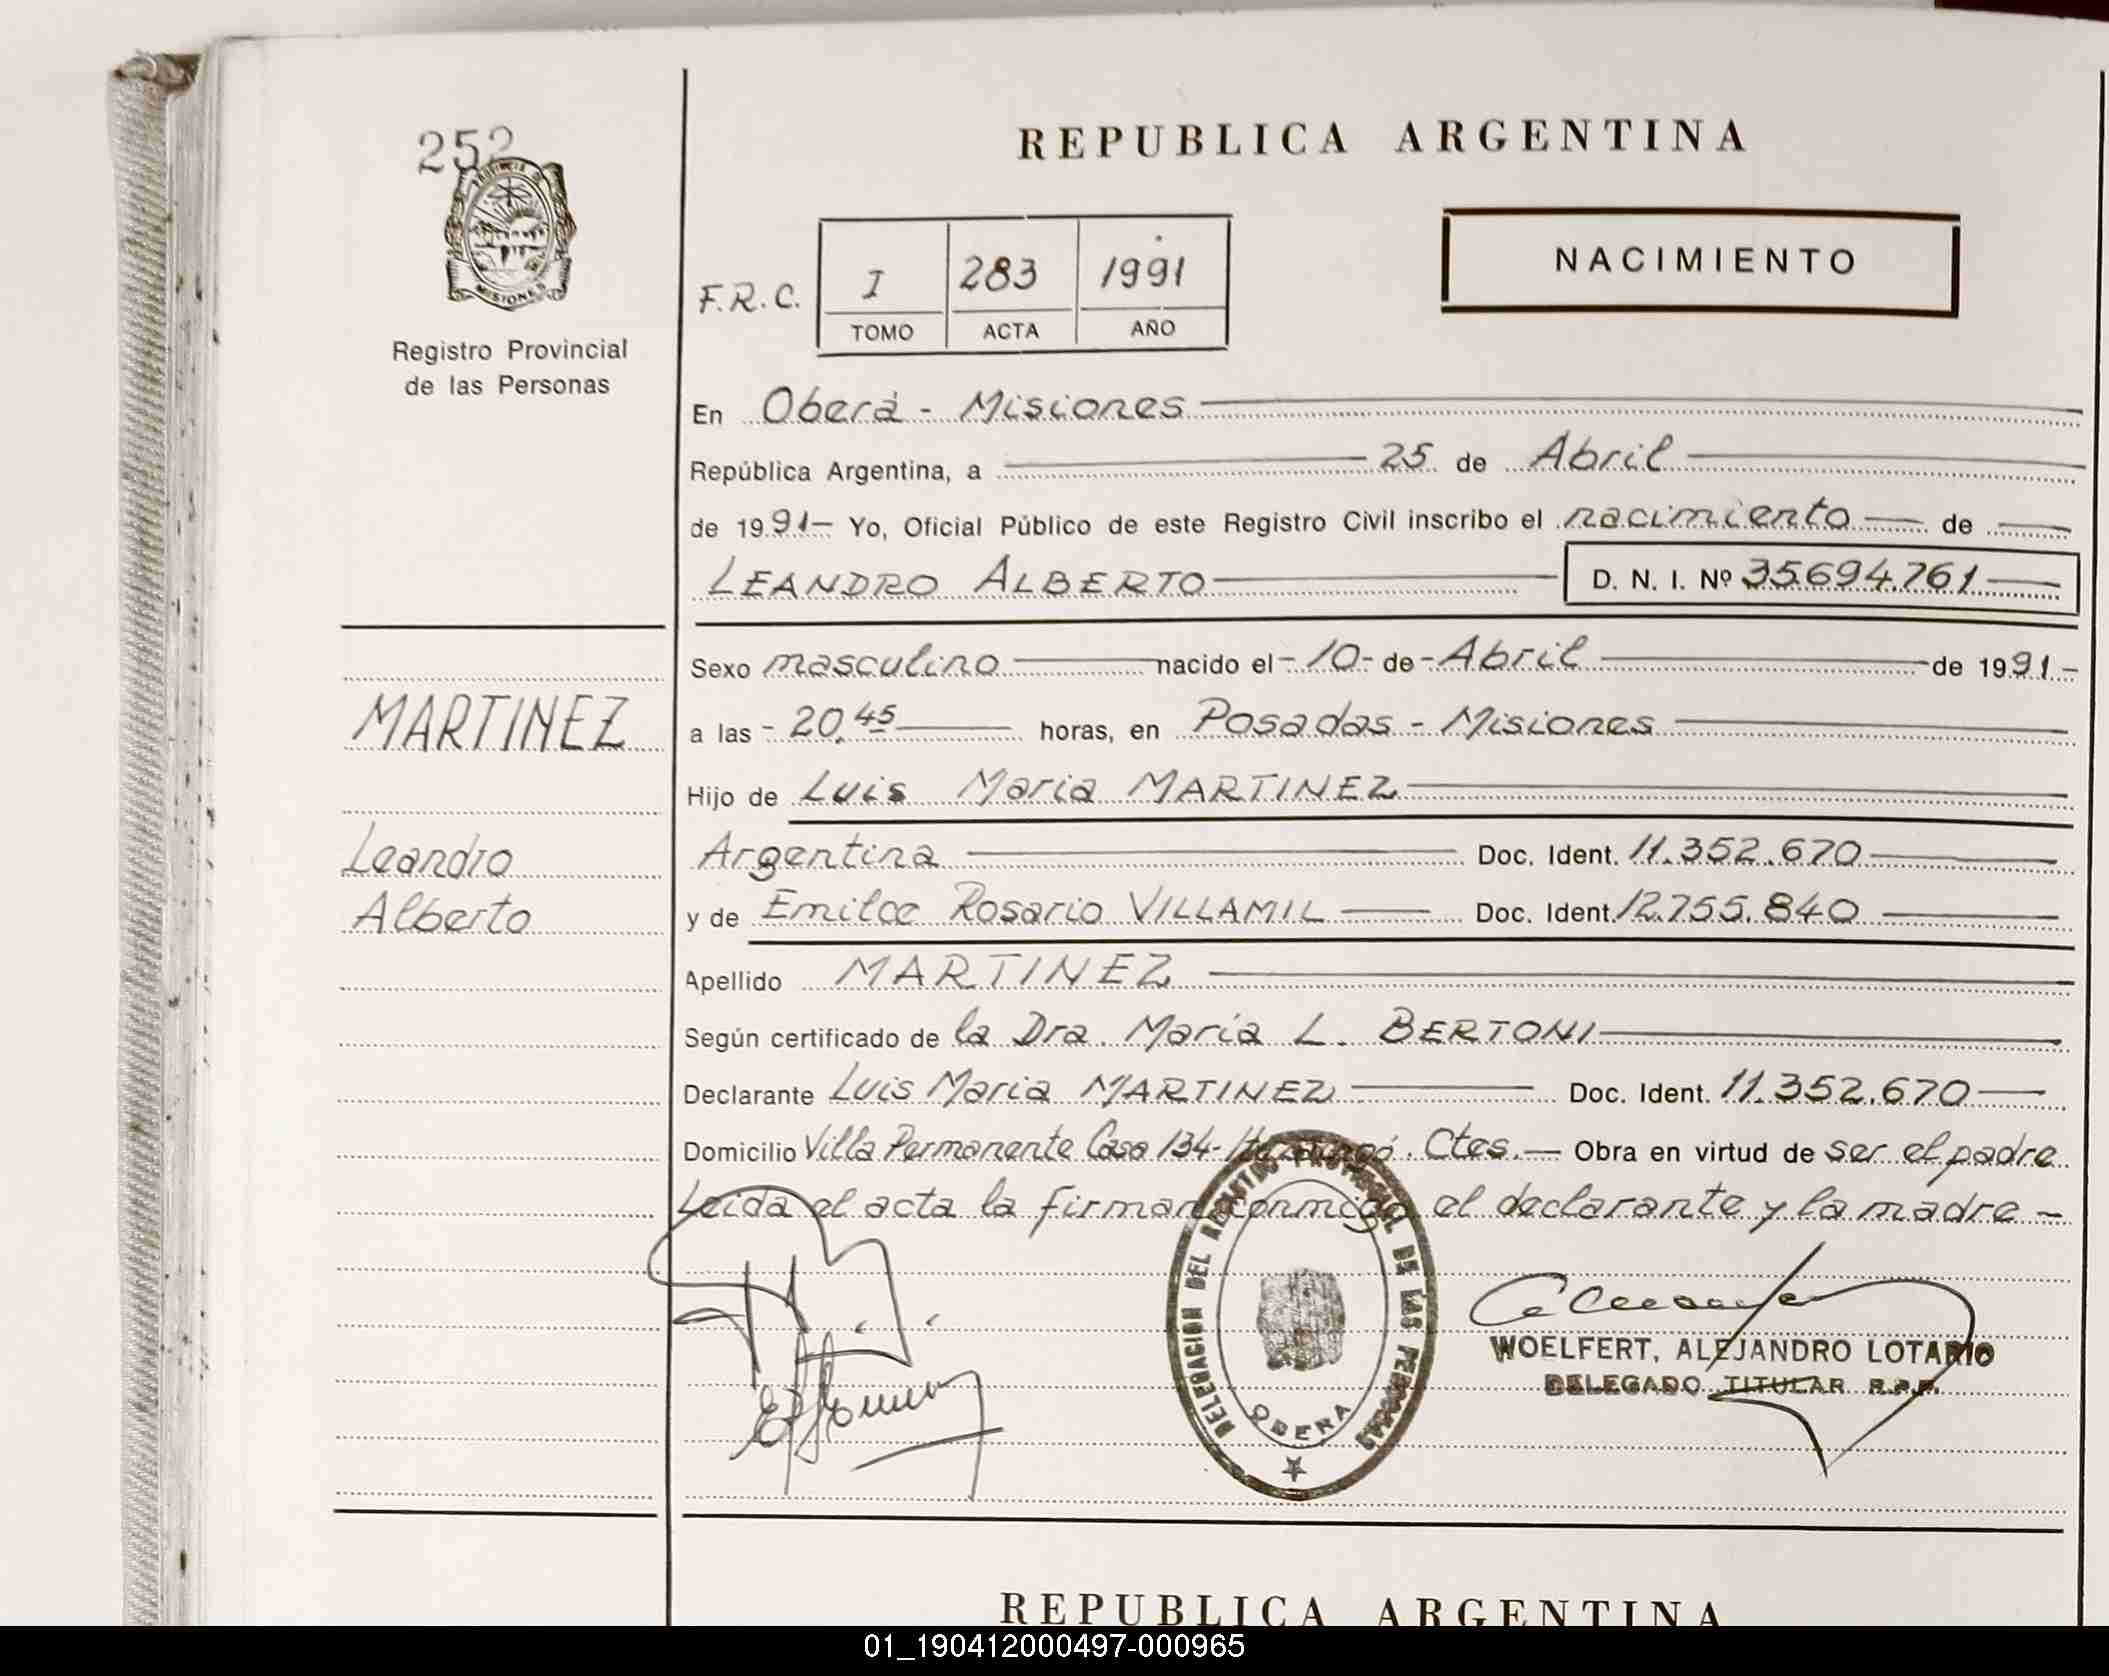 252
PROVINCIA DE
MISIONES
Registro Provincial
de las Personas
MARTINEZ
Leandro
Alberto
REPUBLICA ARGENTINA
NACIMIENTO
F.R.C. I 283 1991
TOMO ACTA AÑO
En Oberá - Misiones
República Argentina, a 25 de Abril
de 1991- Yo, Oficial Público de este Registro Civil inscribo el nacimiento de
LEANDRO ALBERTO D. N. I. Nº 35.694.761
Sexo masculino nacido el - 10 - de - Abril de 1991 -
a las - 20,45 horas, en Posadas - Misiones
Hijo de Luis Maria MARTINEZ
Argentina Doc. Ident. 11.352.670
y de Emilce Rosario VILLAMIL Doc. Ident. 12.755.840
Apellido MARTINEZ
Según certificado de la Dra. Maria L. BERTONI
Declarante Luis Maria MARTINEZ Doc. Ident. 11.352.670
Domicilio Villa Permanente Casa 134- Ctes.- Obra en virtud de ser el padre
Leida el acta la firman conmigo el declarante y la madre -
DELEGACION DEL REGISTRO PROVINCIAL DE LAS PERSONAS
OBERA
WOELFERT, ALEJANDRO LOTARIO
DELEGADO TITULAR R.P.P.
REPUBLICA ARGENTINA
01_190412000497-000965